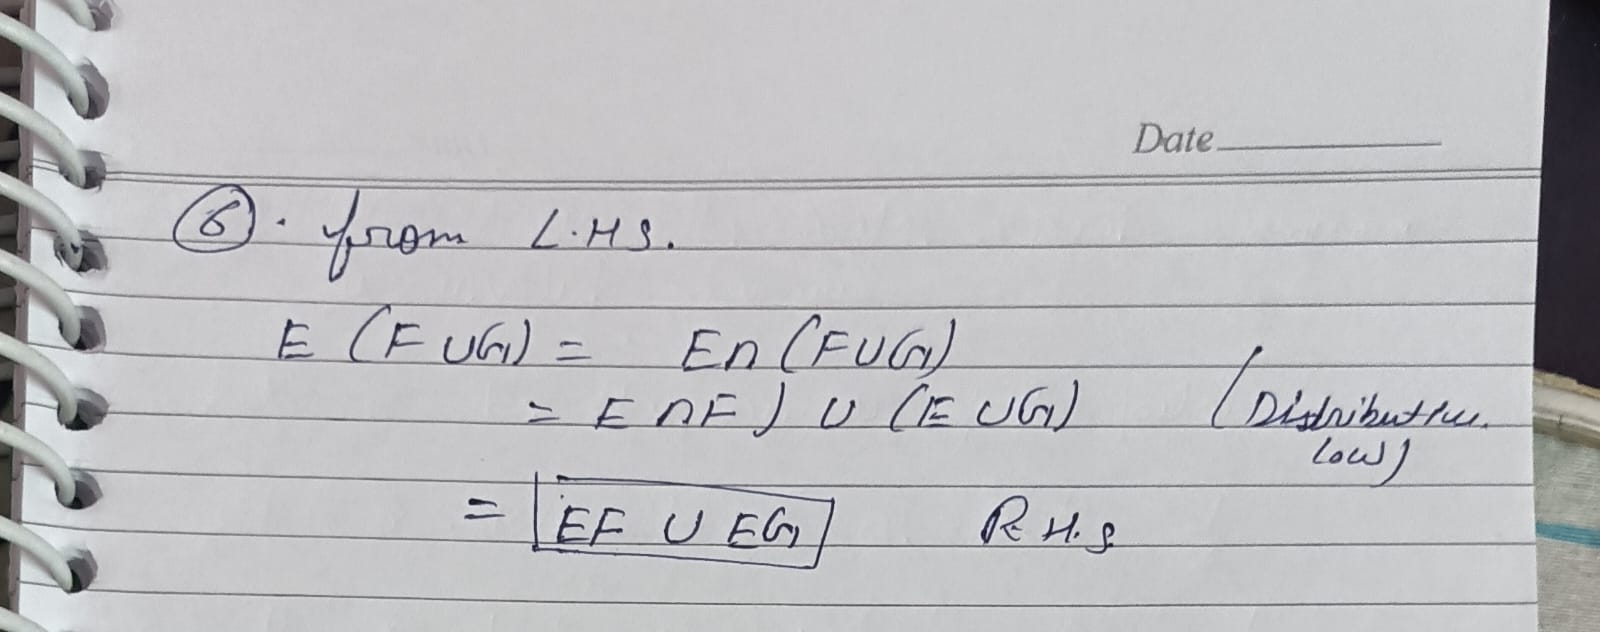 Date
⑥. from L.H.S.
E (F ∪ G) = E ∩ (F ∪ G)
= E ∩ F) ∪ (E ∪ G) (Distributive
Low)
= EF ∪ EG R.H.S